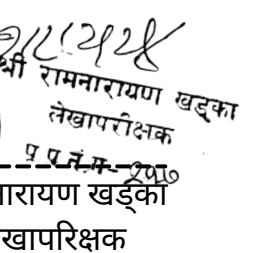 श्री रामनारायण खड्का
लेखापरीक्षक
नारायण खड्का
खापरिक्षक